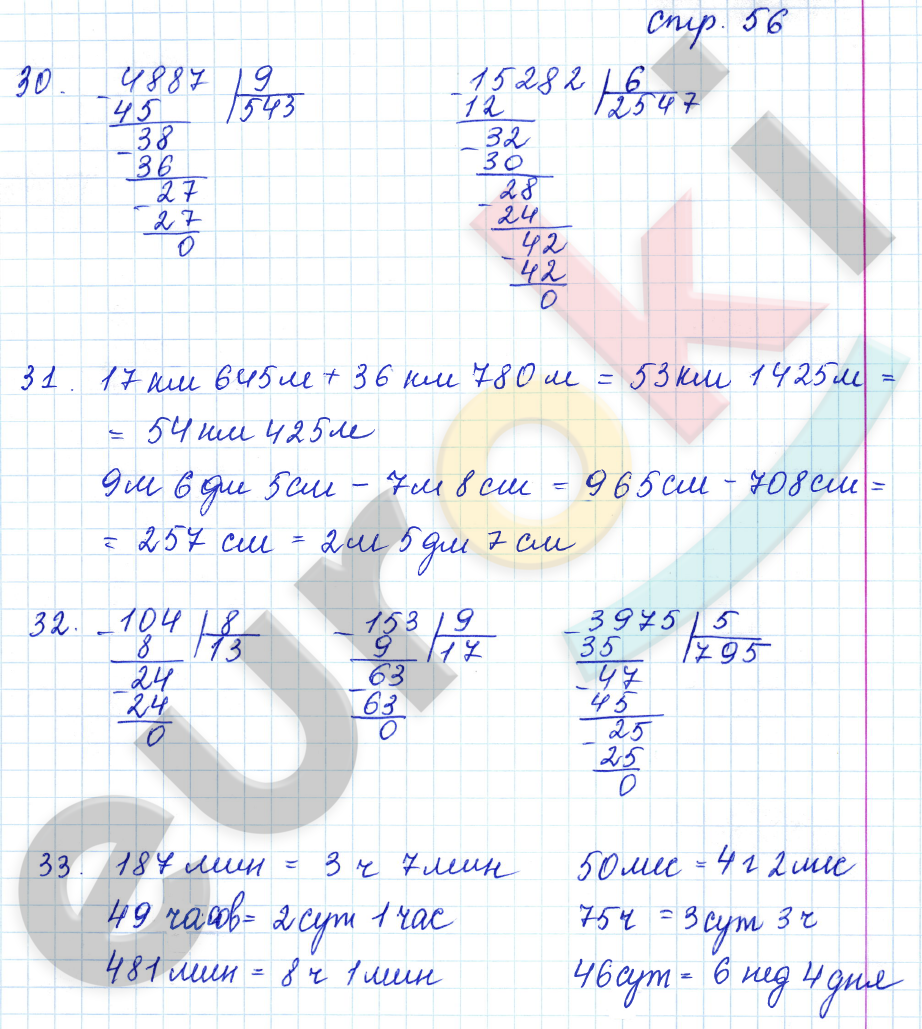 стр. 56
30. - 4887 | 9 - 15282 | 6
45 543 12 2547
- 38 - 32
36 30
- 27 - 28
27 24
0 - 42
42
0
31. 17 км 645 м + 36 км 780 м = 53 км 1425 м =
= 54 км 425 м
9 м 6 дм 5 см - 7 м 8 см = 965 см - 708 см =
= 257 см = 2 м 5 дм 7 см
32. - 104 | 8 - 153 | 9 - 3975 | 5
8 13 9 17 35 795
- 24 - 63 - 47
24 63 45
0 0 - 25
25
0
33. 187 мин = 3 ч 7 мин 50 мес = 4 г 2 мес
49 часов = 2 сут 1 час 75 ч = 3 сут 3 ч
481 мин = 8 ч 1 мин 46 сут = 6 нед 4 дня
euroki